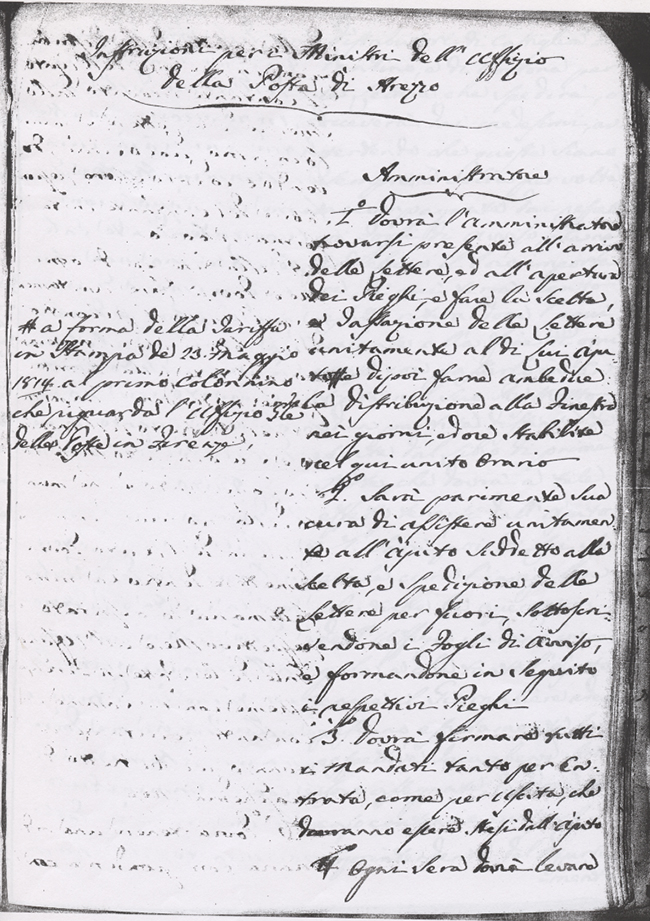 Instruzioni per i Ministri dell'Uffizio
della Posta di Arezzo
Amministratore
1.º Dovrà l'amministratore
trovarsi presente all'arrivo
delle Lettere, ed all'apertura
dei Pieghi, e fare la Scelta,
e Tassazione delle Lettere
# a forma della Tariffa
in Stampa de 23. Maggio
1814. al primo Colonnino
che riguarda l'Uffizio Gle
delle Poste in Firenze,
unitamente al di Lui Aju-
di poi farne ambedue
la distribuzione alla Finestra
nei giorni, ed ore stabilite
nel qui unito Orario
2.º Sarà parimente Sua
cura di assistere unitamen-
te all'Ajuto Suddetto alla
Scelta, e Spedizione delle
Lettere per fuori, Sottoscri-
vendone i Fogli di Avviso,
e formandone in Seguito
i respettivi Pieghi
3.º Dovrà firmare tutti
i Mandati tanto per En-
trata, come per Uscita, che
dovranno essere stesi dall'Ajuto
4 Ogni Sera dovrà levare